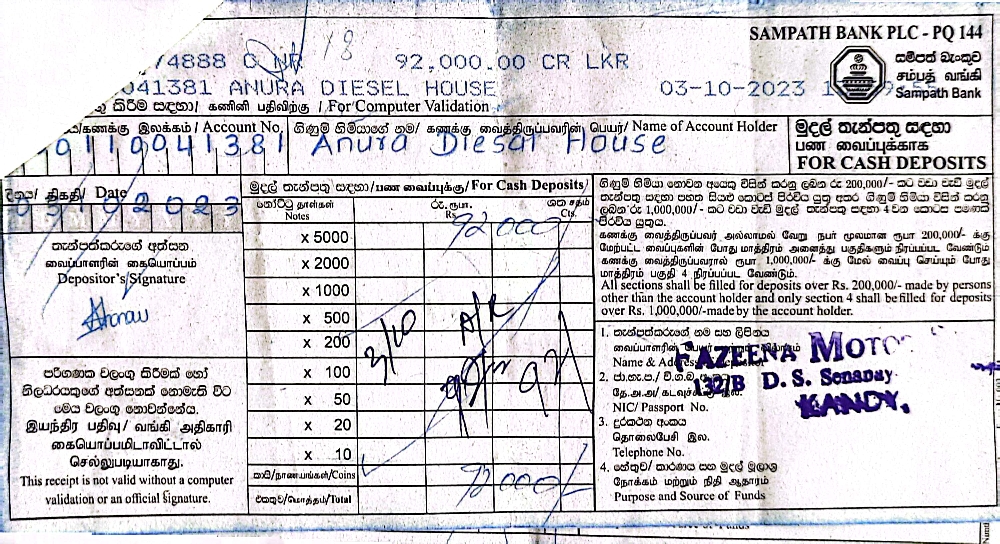 SAMPATH BANK PLC - PQ 144
74888 C NR 18 92,000.00 CR LKR
041381 ANURA DIESEL HOUSE 03-10-2023
සම්පත් බැංකුව
சம்பத் வங்கி
Sampath Bank
කිරීම සඳහා/ கணினி பதிவிற்கு / For Computer Validation
கணக்கு இலக்கம் / Account No.
ගිණුම් හිමියාගේ නම/ கணக்கு வைத்திருப்பவரின் பெயர்/ Name of Account Holder
0110041381 Anura Diesal House
මුදල් තැන්පතු සඳහා
பண வைப்புக்காக
FOR CASH DEPOSITS
දිනය/ திகதி/ Date
03102023
තැන්පත්කරුගේ අත්සන
வைப்பாளரின் கையொப்பம்
Depositor's Signature
පරිගණක වලංගු කිරීමක් හෝ
නිලධරයකුගේ අත්සනක් නොමැති විට
මෙය වලංගු නොවන්නේය.
இயந்திர பதிவு/ வங்கி அதிகாரி
கையொப்பமிடாவிட்டால்
செல்லுபடியாகாது.
This receipt is not valid without a computer
validation or an official signature.
මුදල් තැන්පතු සඳහා/பண வைப்புக்கு/For Cash Deposits
නෝට්ටු தாள்கள்
Notes
රු. ரூபா.
Rs.
ශත சதம்
Cts.
92000/-
x 5000
x 2000
x 1000
x 500
x 200
x 100
x 50
x 20
x 10
3/10
කාසි/நாணயங்கள்/Coins
එකතුව/மொத்தம்/Total
92000/-
ගිණුම් හිමියා නොවන අයෙකු විසින් කරනු ලබන රු 200,000/- කට වඩා වැඩි මුදල්
තැන්පතු සඳහා පහත සියළු කොටස් පිරවිය යුතු අතර ගිණුම් හිමියා විසින් කරනු
ලබන රු 1,000,000/- කට වඩා වැඩි මුදල් තැන්පතු සඳහා 4 වන කොටස පමණක්
පිරවිය යුතුය.
கணக்கு வைத்திருப்பவர் அல்லாமல் வேறு நபர் மூலமான ரூபா 200,000/- க்கு
மேற்பட்ட வைப்புகளின் போது மாத்திரம் அனைத்து பகுதிகளும் நிரப்பப்பட வேண்டும்
கணக்கு வைத்திருப்பவரால் ரூபா 1,000,000/- க்கு மேல் வைப்பு செய்யும் போது
மாத்திரம் பகுதி 4 நிரப்பப்பட வேண்டும்.
All sections shall be filled for deposits over Rs. 200,000/- made by persons
other than the account holder and only section 4 shall be filled for deposits
over Rs. 1,000,000/-made by the account holder.
1. තැන්පත්කරුගේ නම සහ ලිපිනය
வைப்பாளரின்
Name &
FAZEENA MOTO
132/B D. S. Senanay
KANDY.
2. ජා.හැ.ප./ වි.ග.බ.
தே.அ.அ/
NIC/ Passport No.
3. දුරකථන අංකය
தொலைபேசி இல.
Telephone No.
4. හේතුව/ කාරණය සහ මුදල් මූලාශ්‍ර
நோக்கம் மற்றும் நிதி ஆதாரம்
Purpose and Source of Funds